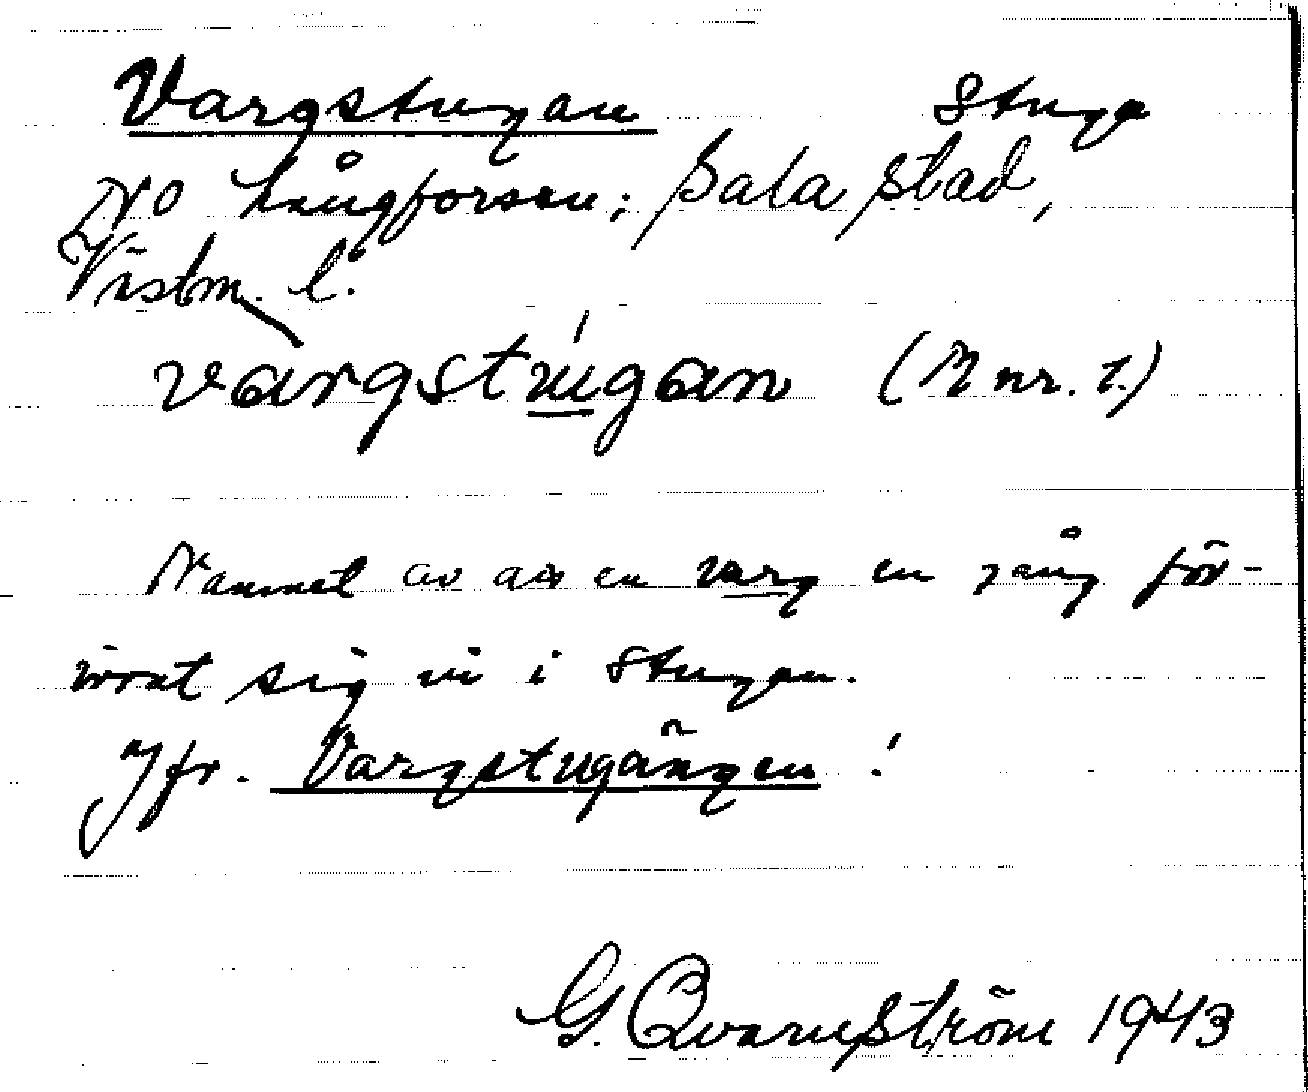 Vargstugan Stuga
NO Långforsen; Sala stad,
Västm. l.
vargstugan (M nr. 1.)
Namnet av att en varg en gång för-
irrat sig in i stugan.
Jfr. Vargstugången!
G. Qvarnström 1943